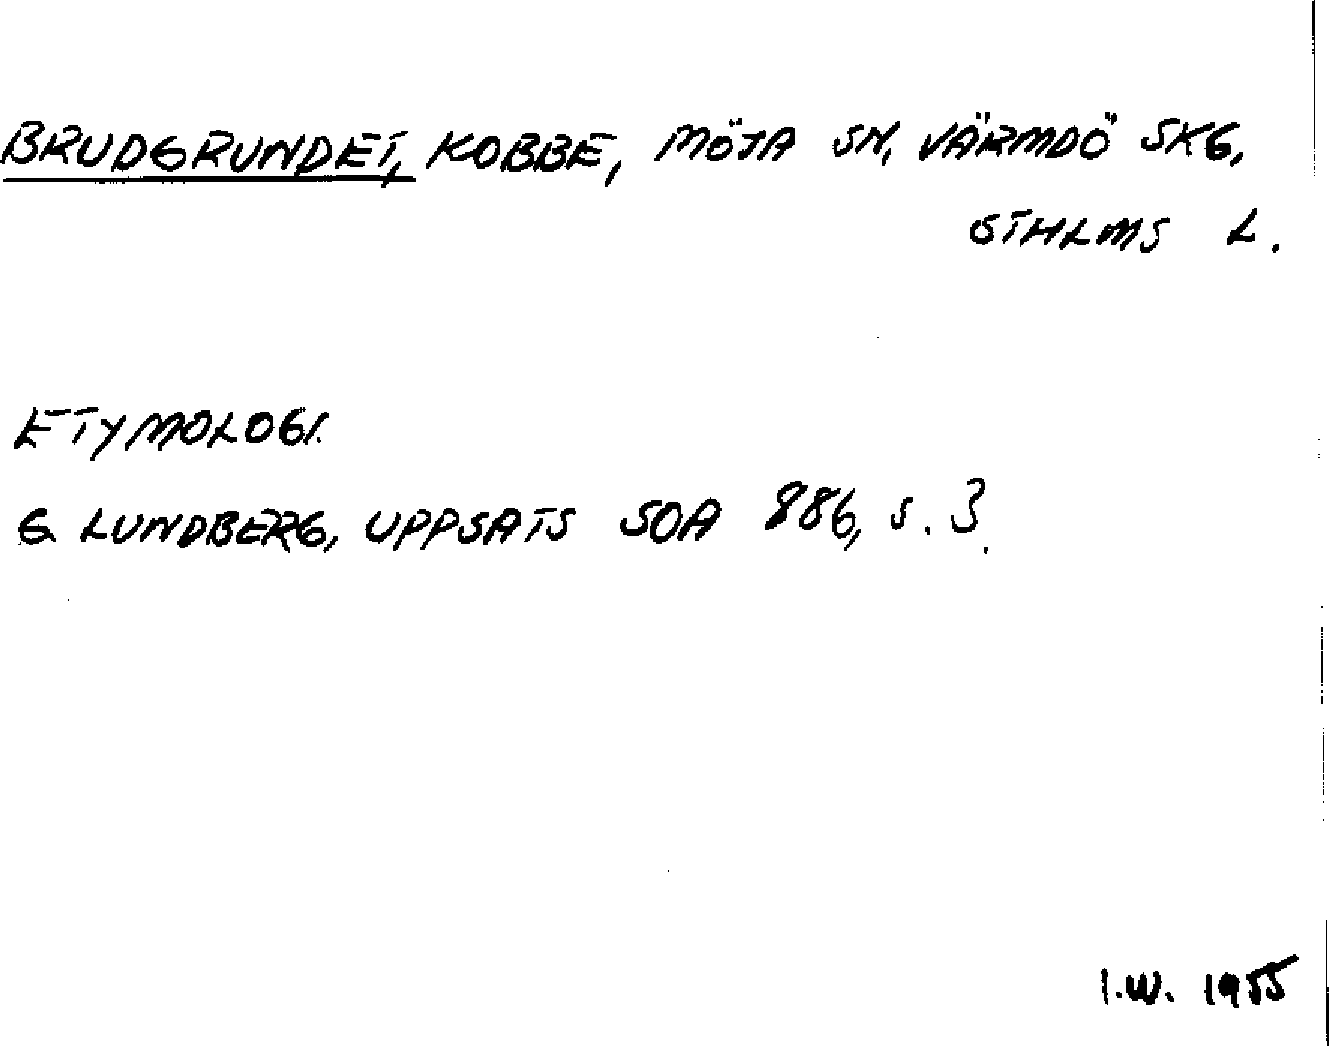 BRUDGRUNDET, KOBBE, MÖJA SN, VÄRMDÖ SKG,
STHLMS L.
ETYMOLOGI.
G LUNDBERG, UPPSATS SOA 886, s. 3.
I.W. 1955